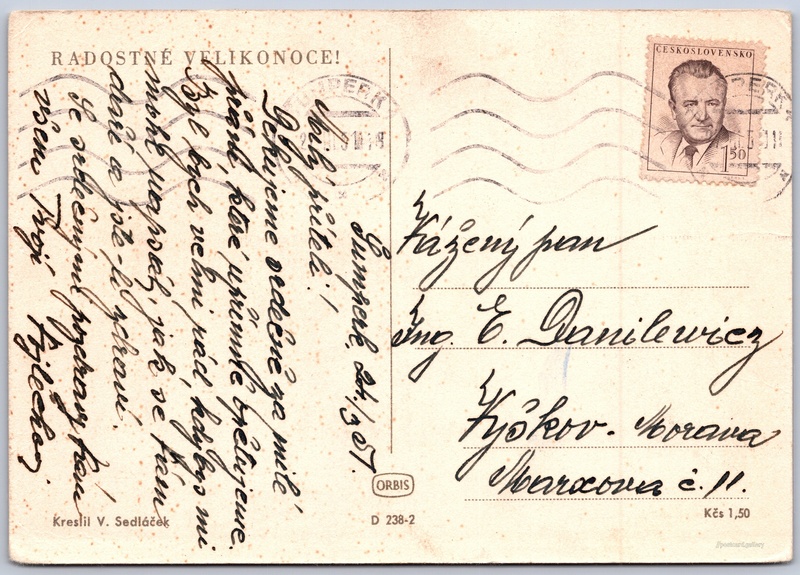 RADOSTNÉ VELIKONOCE!
Šumperk, 24/3 51.
Milý příteli!
Děkujeme srdečně za milé
přání, které upřímně opětujeme.
Byl bych velmi rád, kdybys mi
mohl napsat, jak se Vám
daří a jste-li zdraví.
Se srdečnými pozdravy Vám
všem Tvoji
ČESKOSLOVENSKO
1.50
Vážený pan
Ing. E. Danilewicz
Vyškov - Morava
Marxova č. 11.
ORBIS
Kreslil V. Sedláček
D 238-2
Kčs 1,50